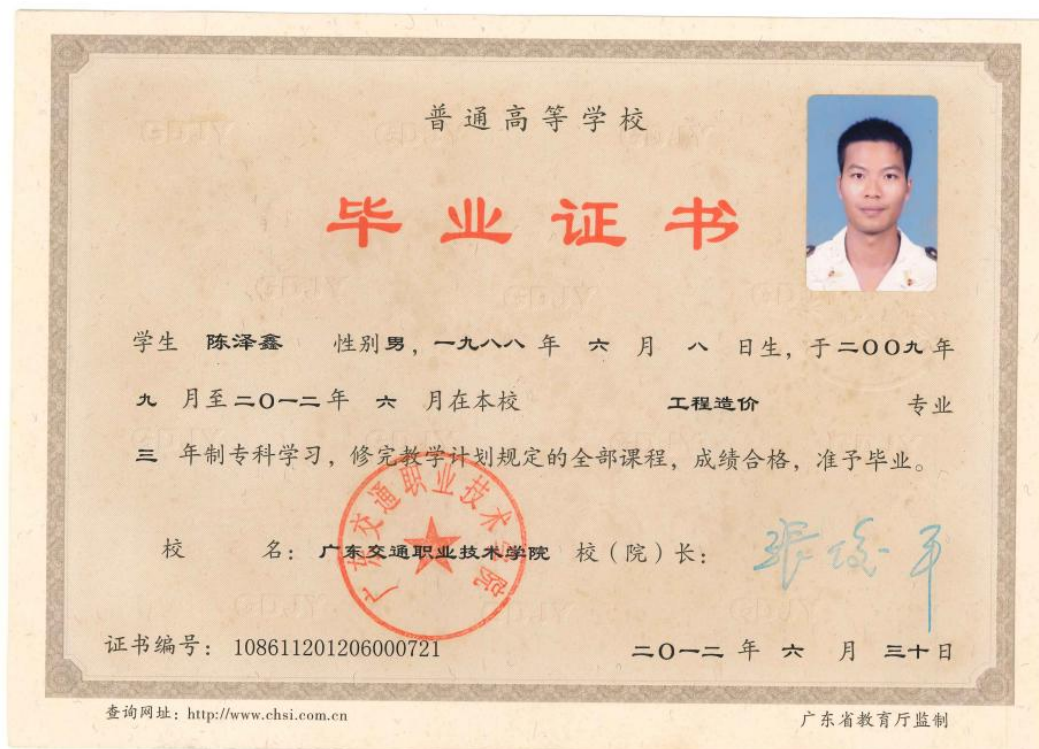 普通高等学校
毕业证书
学生 陈泽鑫 性别男，一九八八年 六 月 八 日生，于二〇〇九年
九 月至二〇一二年 六 月在本校 工程造价 专业
三 年制专科学习，修完教学计划规定的全部课程，成绩合格，准予毕业。
广东交通职业技术学院
校 名：广东交通职业技术学院 校（院）长：
证书编号：108611201206000721 二〇一二 年 六 月 三十日
查询网址：http://www.chsi.com.cn 广东省教育厅监制